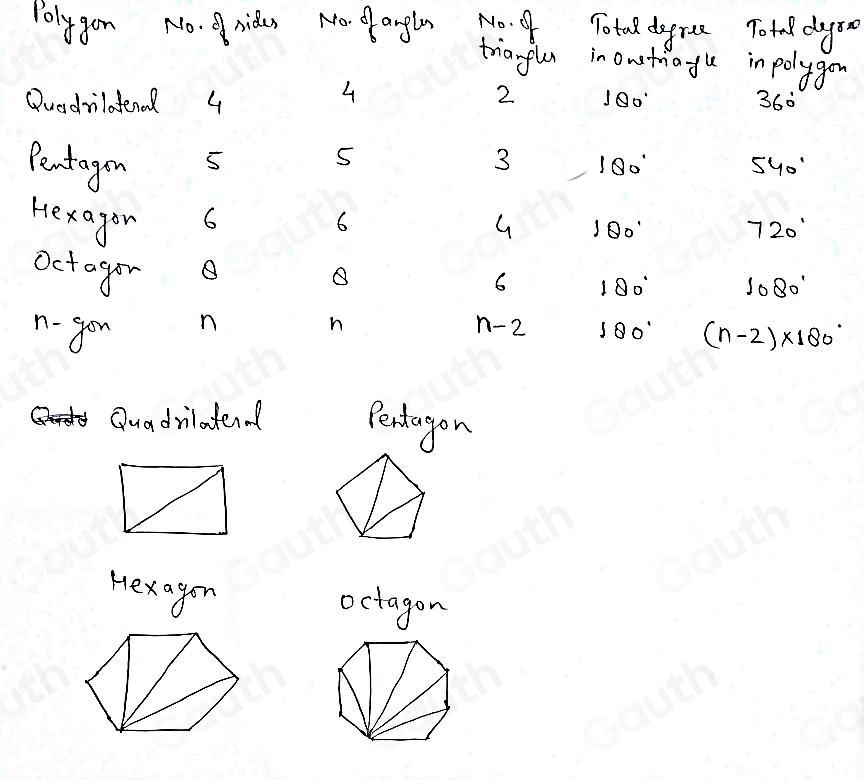 Polygon No. of sides No. of angles No. of triangles Total degree in one triangle Total degree in polygon
Quadrilateral 4 4 2 180° 360°
Pentagon 5 5 3 180° 540°
Hexagon 6 6 4 180° 720°
Octagon 8 8 6 180° 1080°
n-gon n n n-2 180° (n-2)×180°
Quadrilateral Pentagon
Hexagon Octagon